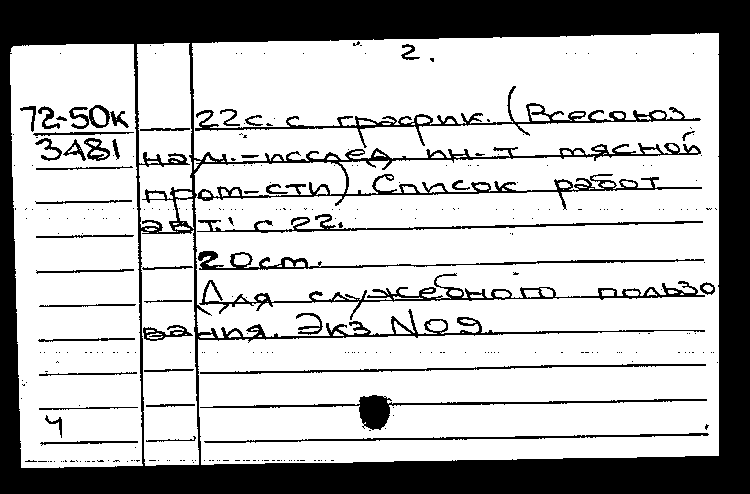 2.
72-50к 22 с. с график. (Всесоюз
3481 науч.-исслед. ин-т мясной
пром-сти). Список работ
авт.: с 22.
20 cm.
Для служебного пользо
вания. Экз. №09.
4